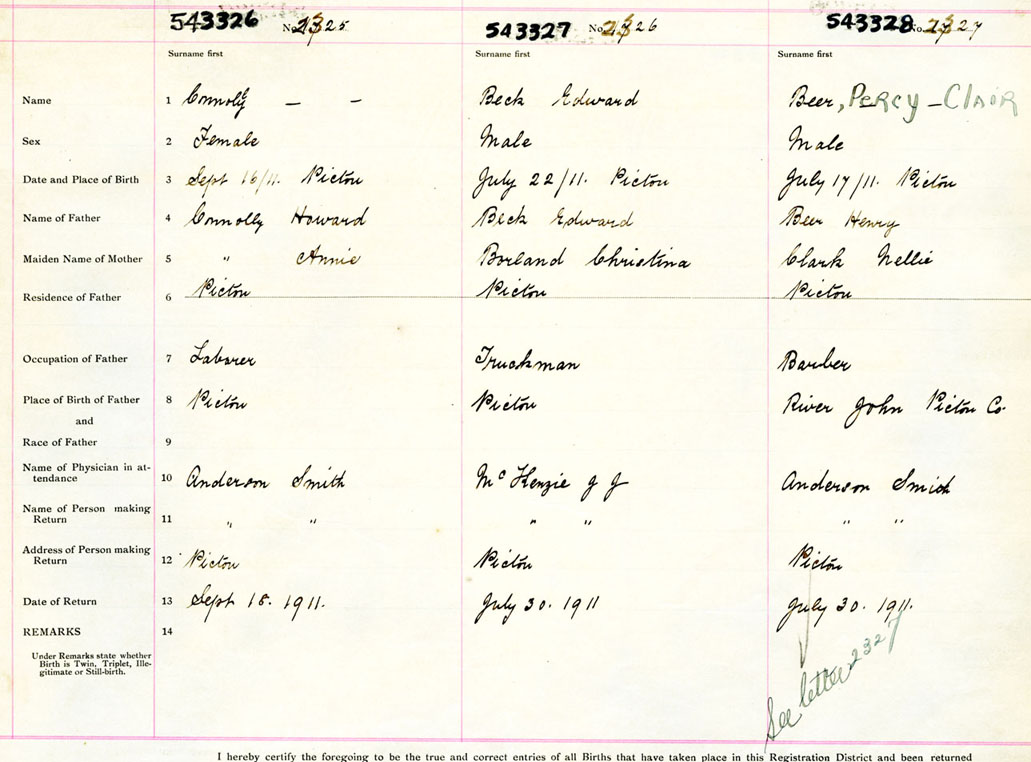 543326 No. 2325 543327 No. 2326 543328 No. 2327
Surname first Surname first Surname first
Name 1 Connolly — — Beck Edward Beer, Percy-Clair
Sex 2 Female Male Male
Date and Place of Birth 3 Sept 16/11. Pictou July 22/11. Pictou July 17/11. Pictou
Name of Father 4 Connolly Howard Beck Edward Beer Henry
Maiden Name of Mother 5 " Annie Borland Christina Clark Nellie
Residence of Father 6 Pictou Pictou Pictou
Occupation of Father 7 Laborer Truckman Barber
Place of Birth of Father 8 Pictou Pictou River John Pictou Co.
and
Race of Father 9
Name of Physician in at-
tendance 10 Anderson Smith McKenzie J J Anderson Smith
Name of Person making
Return 11 " " " " " "
Address of Person making
Return 12 Pictou Pictou Pictou
Date of Return 13 Sept 18. 1911. July 30. 1911 July 30. 1911.
REMARKS 14
Under Remarks state whether
Birth is Twin, Triplet, Ille-
gitimate or Still-birth.
See letter 2327
I hereby certify the foregoing to be the true and correct entries of all Births that have taken place in this Registration District and been returned